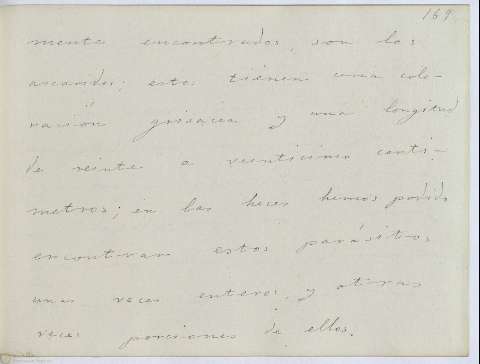 169
mente encontrados, son los
ascarides; estos tienen una colo-
ración grisacea y una longitud
de veinte a veinticinco centi-
metros; en las heces hemos podido
encontrar estos parásitos
unas veces enteros, y otras
veces porciones de ellos.